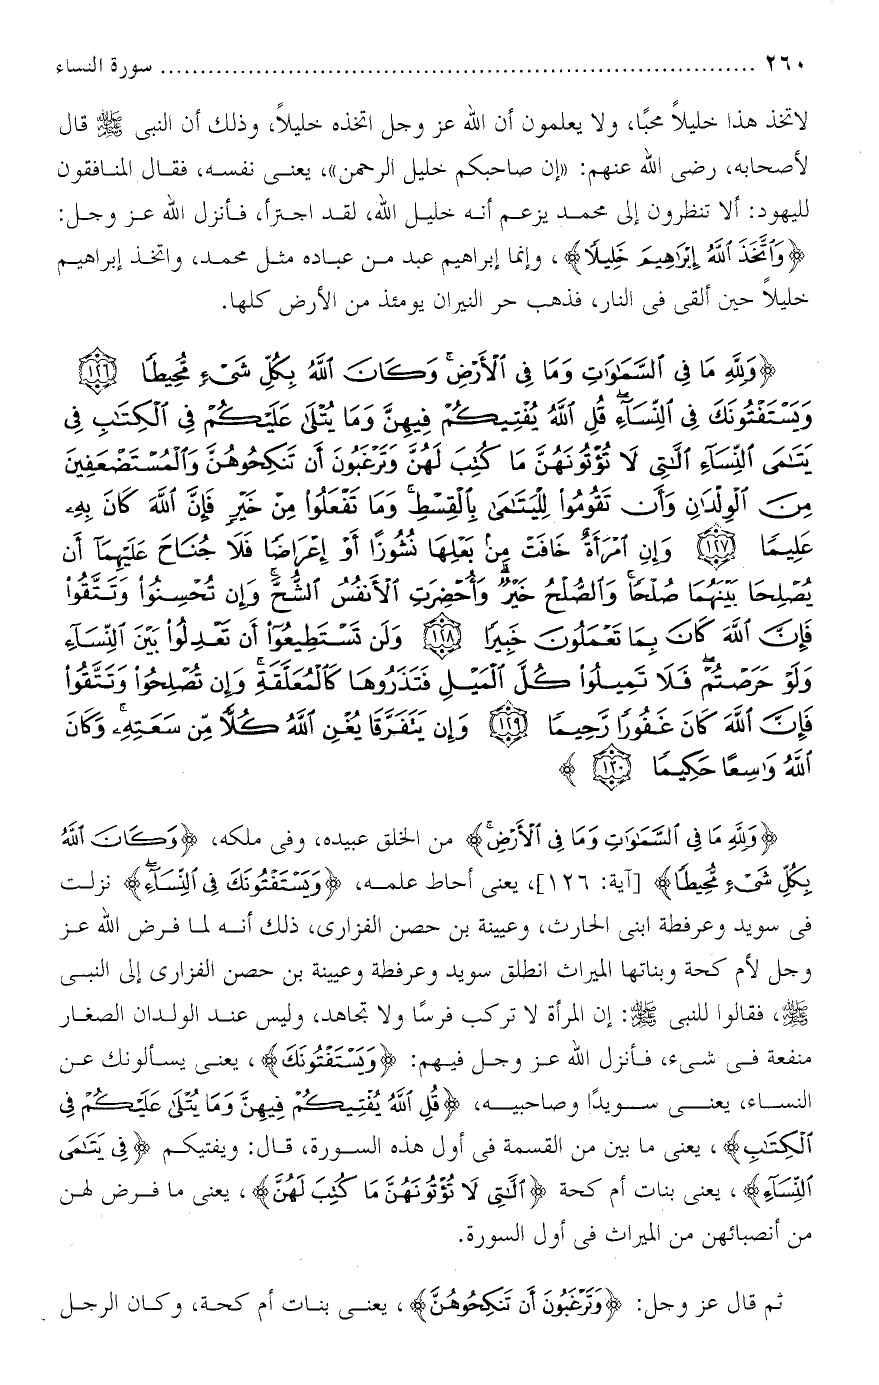 ٢٦٠ ........................................................................ سورة النساء
لاتخذ هذا خليلاً محبًا، ولا يعلمون أن الله عز وجل اتخذه خليلاً، وذلك أن النبى ﷺ قال
لأصحابه، رضى الله عنهم: «إن صاحبكم خليل الرحمن»، يعنـى نفسـه، فقـال المنـافقون
لليهود: ألا تنظرون إلى محمـد يزعـم أنـه خليـل الله، لقـد اجترأ، فـأنزل الله عـز وجـل:
﴿وَٱتَّخَذَ ٱللَّهُ إِبْرَٰهِيمَ خَلِيلًا﴾، وإنما إبراهيم عبد مـن عبـاده مثـل محمـد، واتخـذ إبراهيـم
خليلاً حين ألقى فى النار، فذهب حر النيران يومئذ من الأرض كلها.
﴿وَلِلَّهِ مَا فِى ٱلسَّمَٰوَٰتِ وَمَا فِى ٱلْأَرْضِ ۚ وَكَانَ ٱللَّهُ بِكُلِّ شَىْءٍ مُّحِيطًا ١٢٦
وَيَسْتَفْتُونَكَ فِى ٱلنِّسَآءِ ۖ قُلِ ٱللَّهُ يُفْتِيكُمْ فِيهِنَّ وَمَا يُتْلَىٰ عَلَيْكُمْ فِى ٱلْكِتَٰبِ فِى
يَتَٰمَى ٱلنِّسَآءِ ٱلَّٰتِى لَا تُؤْتُونَهُنَّ مَا كُتِبَ لَهُنَّ وَتَرْغَبُونَ أَن تَنكِحُوهُنَّ وَٱلْمُسْتَضْعَفِينَ
مِنَ ٱلْوِلْدَٰنِ وَأَن تَقُومُوا۟ لِلْيَتَٰمَىٰ بِٱلْقِسْطِ ۚ وَمَا تَفْعَلُوا۟ مِنْ خَيْرٍ فَإِنَّ ٱللَّهَ كَانَ بِهِۦ
عَلِيمًا ١٢٧ وَإِنِ ٱمْرَأَةٌ خَافَتْ مِنۢ بَعْلِهَا نُشُوزًا أَوْ إِعْرَاضًا فَلَا جُنَاحَ عَلَيْهِمَآ أَن
يُصْلِحَا بَيْنَهُمَا صُلْحًا ۚ وَٱلصُّلْحُ خَيْرٌ ۗ وَأُحْضِرَتِ ٱلْأَنفُسُ ٱلشُّحَّ ۚ وَإِن تُحْسِنُوا۟ وَتَتَّقُوا۟
فَإِنَّ ٱللَّهَ كَانَ بِمَا تَعْمَلُونَ خَبِيرًا ١٢٨ وَلَن تَسْتَطِيعُوٓا۟ أَن تَعْدِلُوا۟ بَيْنَ ٱلنِّسَآءِ
وَلَوْ حَرَصْتُمْ ۖ فَلَا تَمِيلُوا۟ كُلَّ ٱلْمَيْلِ فَتَذَرُوهَا كَٱلْمُعَلَّقَةِ ۚ وَإِن تُصْلِحُوا۟ وَتَتَّقُوا۟
فَإِنَّ ٱللَّهَ كَانَ غَفُورًا رَّحِيمًا ١٢٩ وَإِن يَتَفَرَّقَا يُغْنِ ٱللَّهُ كُلًّا مِّن سَعَتِهِۦ ۚ وَكَانَ
ٱللَّهُ وَٰسِعًا حَكِيمًا ١٣٠ ﴾
﴿وَلِلَّهِ مَا فِى ٱلسَّمَٰوَٰتِ وَمَا فِى ٱلْأَرْضِ ۚ﴾ من الخلق عبيده، وفى ملكه، ﴿وَكَانَ ٱللَّهُ
بِكُلِّ شَىْءٍ مُّحِيطًا﴾ [آية: ١٢٦]، يعنى أحاط علمـه، ﴿وَيَسْتَفْتُونَكَ فِى ٱلنِّسَآءِ ۖ﴾ نزلـت
فى سويد وعرفطة ابنى الحارث، وعيينة بن حصن الفزارى، ذلك أنـه لمـا فـرض الله عـز
وجل لأم كحة وبناتها الميراث انطلق سويد وعرفطة وعيينة بن حصن الفزارى إلى النبـى
ﷺ، فقالوا للنبى ﷺ: إن المرأة لا تركب فرسًا ولا تجاهد، وليس عنـد الولـدان الصغـار
منفعة فـى شـىء، فـأنزل الله عـز وجـل فيـهم: ﴿وَيَسْتَفْتُونَكَ﴾، يعنـى يسـألونك عـن
النسـاء، يعنـى سـويدًا وصاحبيـه، ﴿قُلِ ٱللَّهُ يُفْتِيكُمْ فِيهِنَّ وَمَا يُتْلَىٰ عَلَيْكُمْ فِى
ٱلْكِتَٰبِ﴾، يعنى ما بين من القسمة فى أول هذه السـورة، قـال: ويفتيكـم ﴿فِى يَتَٰمَى
ٱلنِّسَآءِ﴾، يعنى بنات أم كحة ﴿ٱلَّٰتِى لَا تُؤْتُونَهُنَّ مَا كُتِبَ لَهُنَّ﴾، يعنى ما فـرض لهـن
من أنصبائهن من الميراث فى أول السورة.
ثم قال عز وجل: ﴿وَتَرْغَبُونَ أَن تَنكِحُوهُنَّ﴾، يعنـى بنـات أم كحـة، وكـان الرجـل